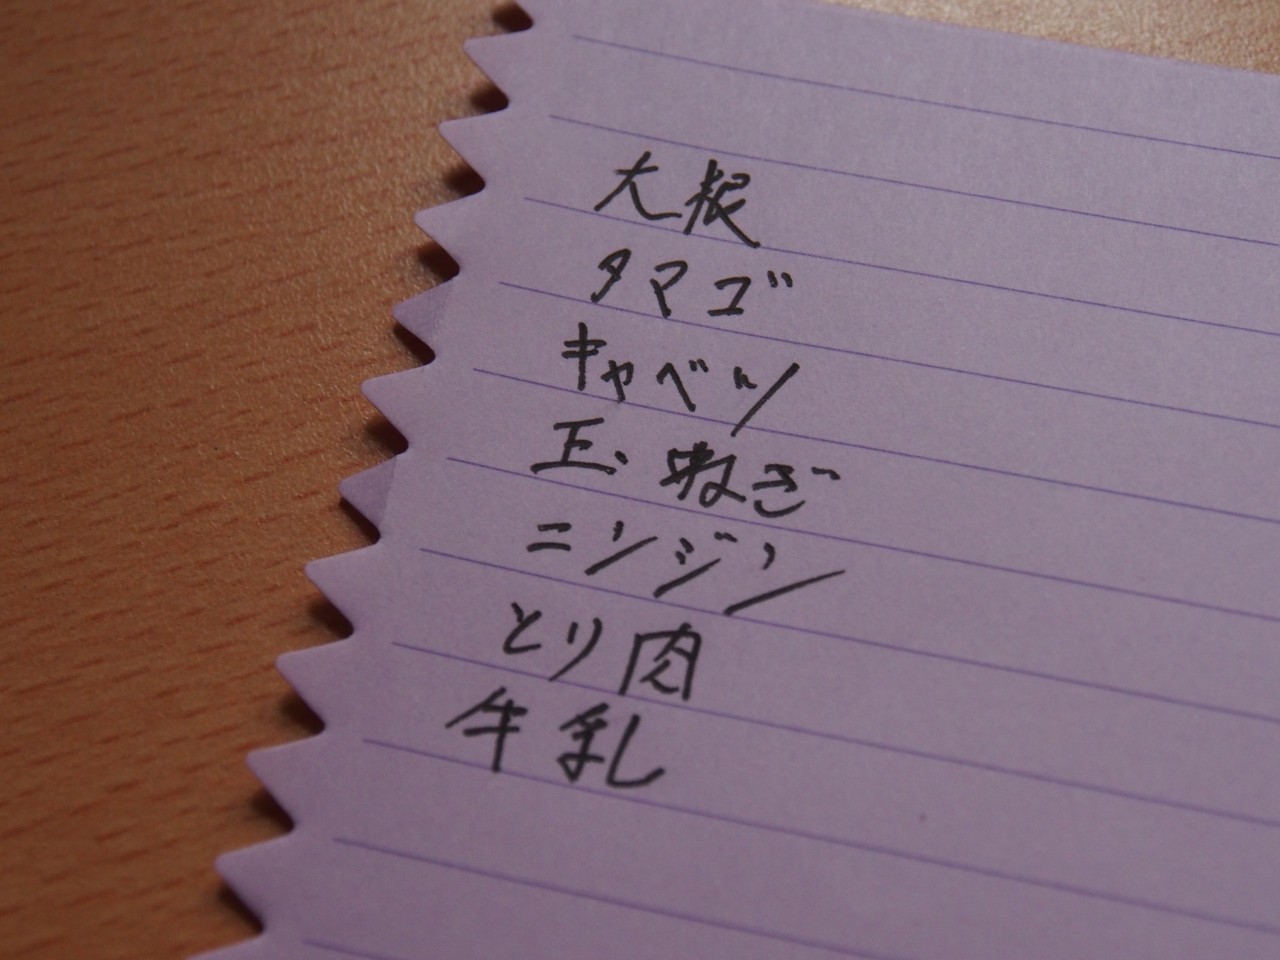 大根
タマゴ
キャベツ
玉ねぎ
ニンジン
とり肉
牛乳